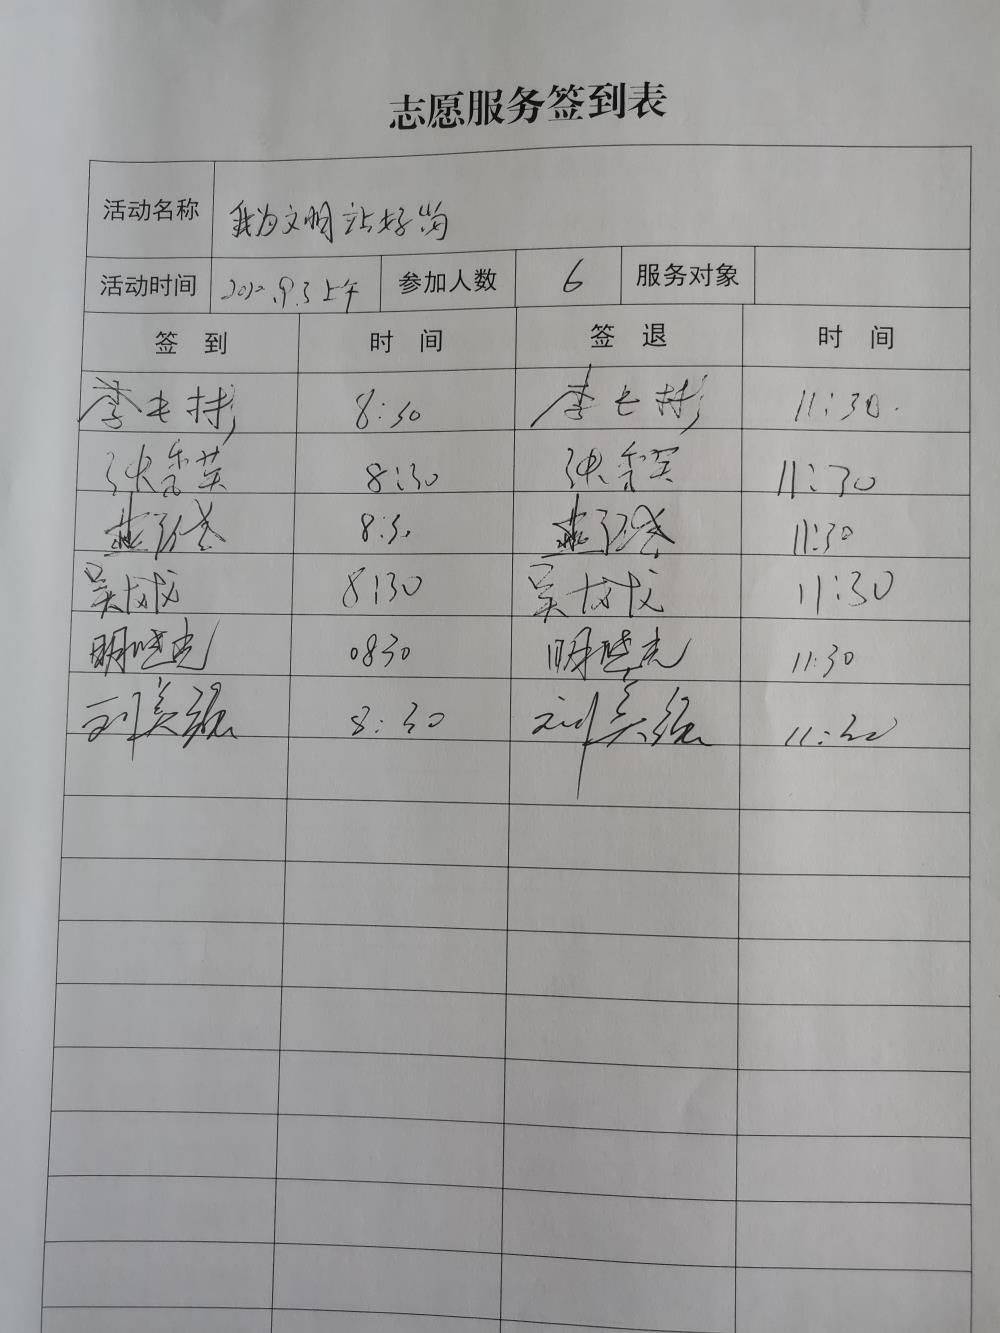 志愿服务签到表
活动名称 我为文明站好岗
活动时间 上午 参加人数 6 服务对象
签到 时间 签退 时间
李长彬 8:30 李长彬 11:30.
张秀英 8:30 张秀英 11:30
8:30 11:30
吴成 8:30 吴成 11:30
明 0830 明 11:30
刘美强 8:30 刘美强 11:30